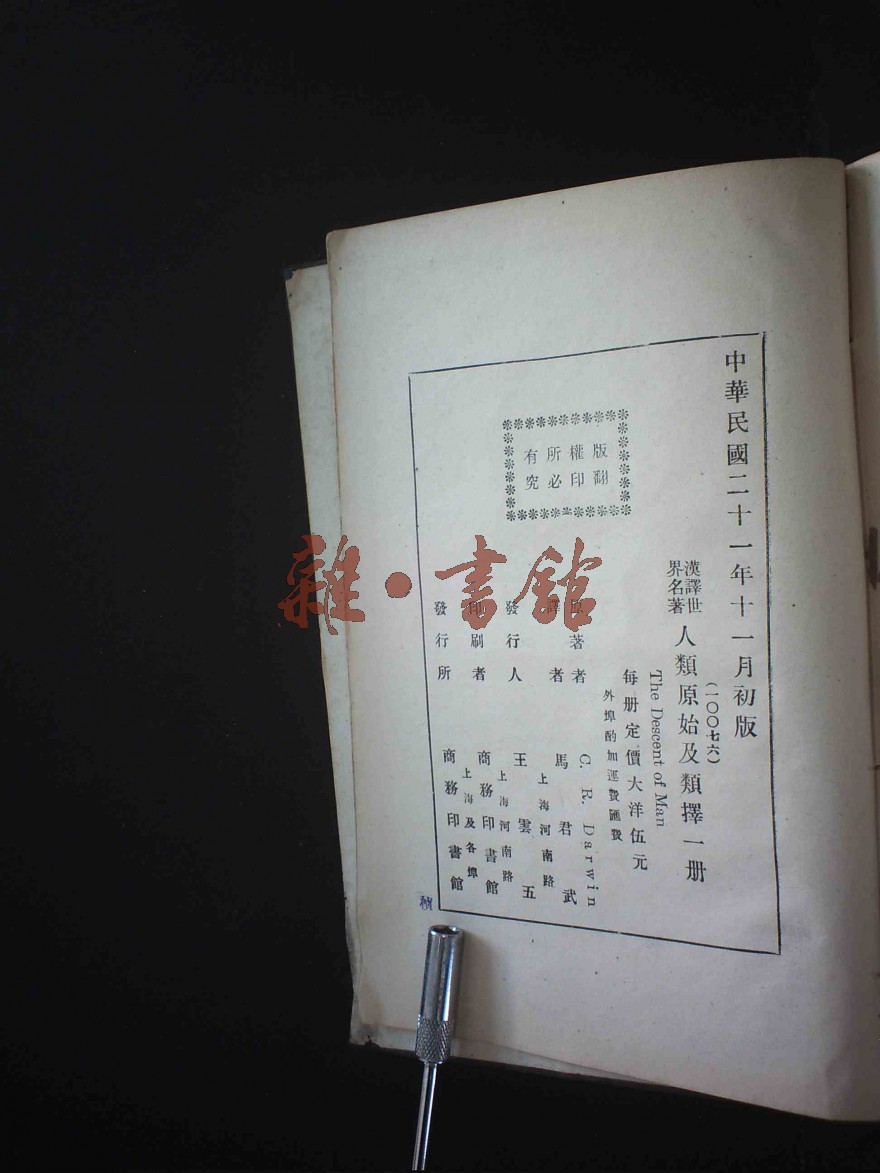 中華民國二十一年十一月初版
(一〇〇七六)
漢譯世界名著 人類原始及類擇一册
The Descent of Man
每册定價大洋伍元
外埠酌加運費匯費
版權所有
翻印必究
原著者 C. R. Darwin
譯者 馬君武
發行人 王雲五
上海河南路
印刷者 商務印書館
上海河南路
發行所 商務印書館
上海及各埠
雜·書館